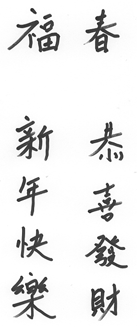 春
恭喜發財
福
新年快樂